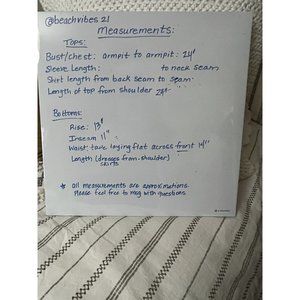 @beachvibes21
Measurements:
Tops:
Bust/chest: armpit to armpit: 24"
Sleeve Length: to neck seam
Shirt length from back seam to seam
Length of top from shoulder 28"
Bottoms:
Rise: 13"
Inseam 11"
Waist taken laying flat across front 19"
Length (dresses from shoulder)
skirts
* all measurements are approximations.
Please feel free to msg with questions